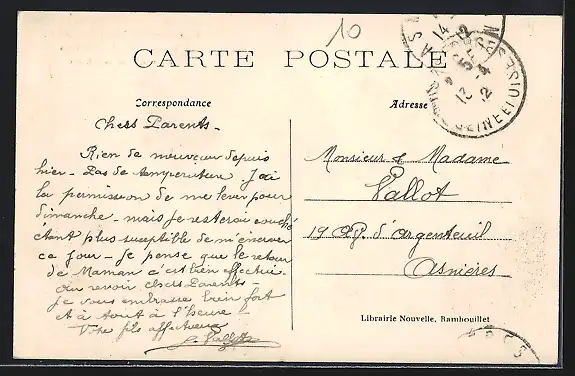 10
CARTE POSTALE
Correspondance
Adresse
Chers Parents -
Rien de nouveau depuis
hier - Pas de température J'ai
la permission de me lever pour
dimanche - mais je resterai couché
étant plus susceptible de m'énerver
ce jour - Je pense que le retour
de Maman c'est bien effectué.
au revoir chers Parents -
je vous embrasse bien fort
et à tout à l'heure -
Votre fils affectueux
Monsieur & Madame
Vallot
19 Av. d'Argenteuil
Asnières
Librairie Nouvelle, Rambouillet